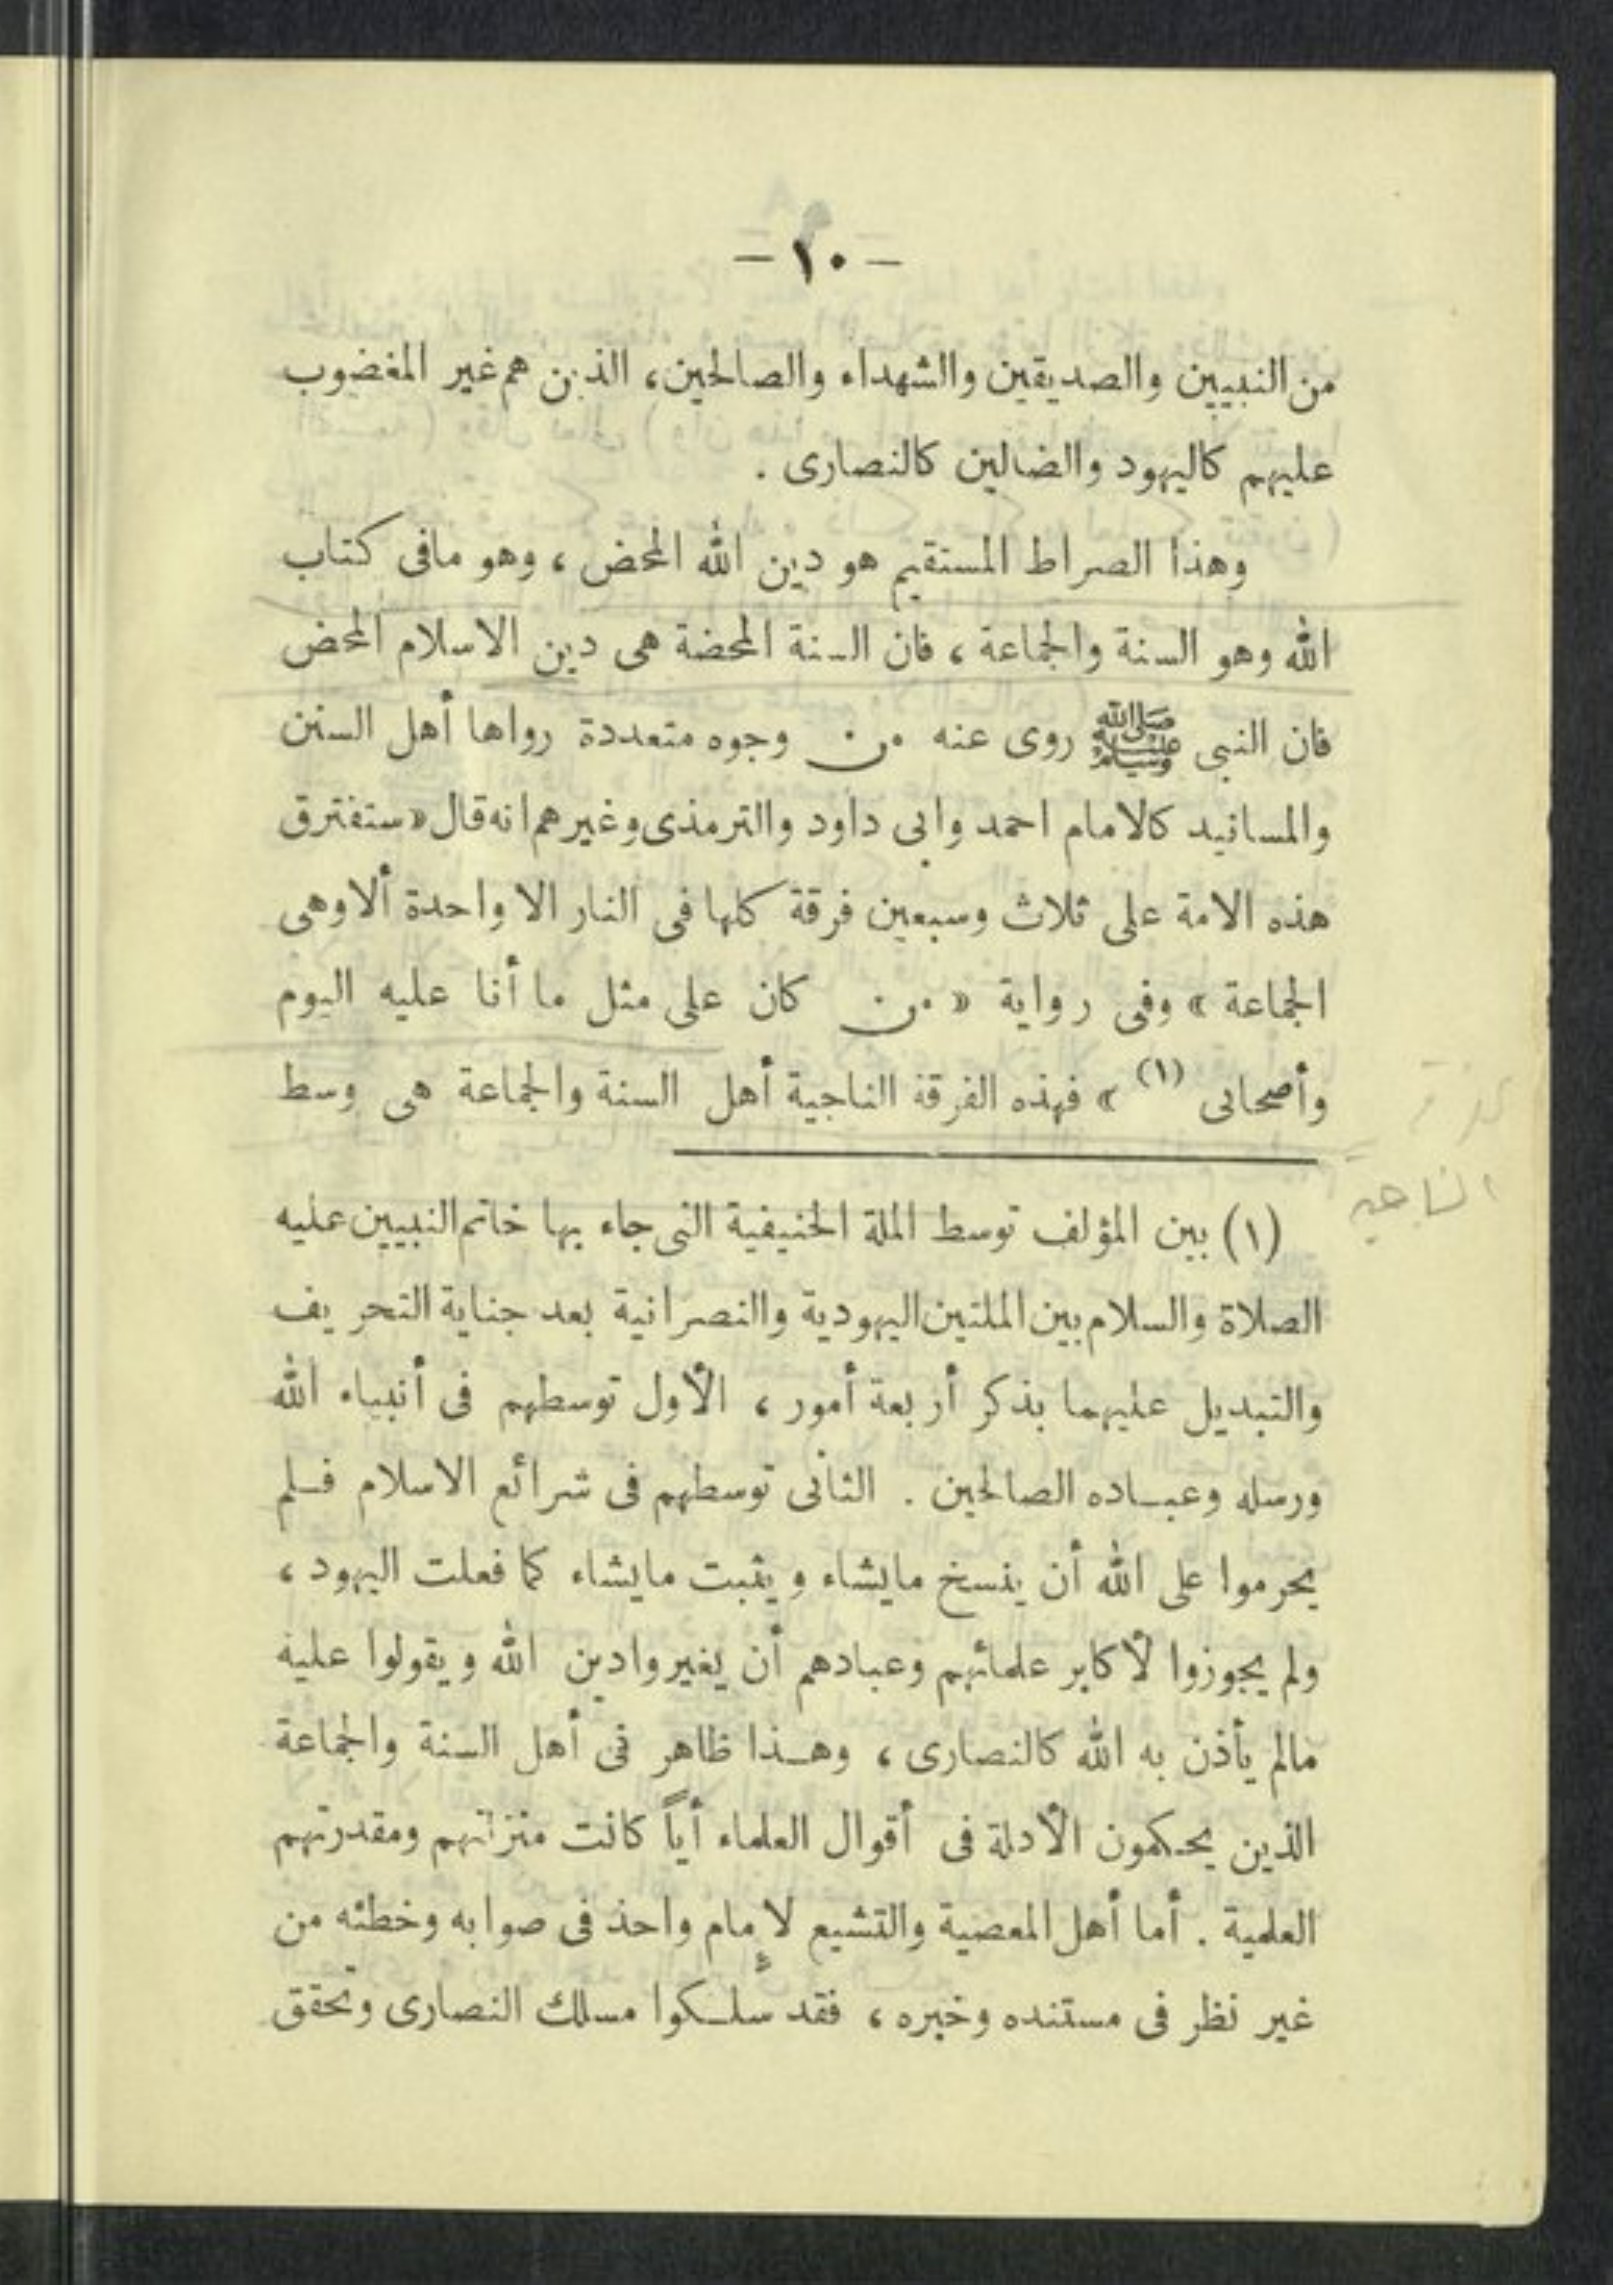 — ١٠ —
من النبيين والصديقين والشهداء والصالحين، الذين هم غير المغضوب
عليهم كاليهود والضالين كالنصارى .
وهذا الصراط المستقيم هو دين الله المحض ، وهو مافى كتاب
الله وهو السنة والجماعة ، فان السنة المحضة هى دين الاسلام المحض
فان النبى ﷺ روى عنه من وجوه متعددة رواها أهل السنن
والمسانيد كالامام احمد وابى داود والترمذى وغيرهم انه قال «ستفترق
هذه الامة على ثلاث وسبعين فرقة كلها فى النار الا واحدة ألا وهى
الجماعة » وفى رواية « من كان على مثل ما أنا عليه اليوم
وأصحابى (١) » فهذه الفرقة الناجية أهل السنة والجماعة هى وسط
الناجية
(١) بين المؤلف توسط الملة الحنيفية التى جاء بها خاتم النبيين عليه
الصلاة والسلام بين الملتين اليهودية والنصرانية بعد جناية التحريف
والتبديل عليهما بذكر أربعة أمور ، الأول توسطهم فى أنبياء الله
ورسله وعباده الصالحين . الثانى توسطهم فى شرائع الاسلام فلم
يحرموا على الله أن ينسخ مايشاء ويثبت مايشاء كما فعلت اليهود ،
ولم يجوزوا لأكابر علمائهم وعبادهم أن يغيروا دين الله ويقولوا عليه
مالم يأذن به الله كالنصارى ، وهذا ظاهر فى أهل السنة والجماعة
الذين يحكمون الأدلة فى أقوال العلماء أياً كانت منزلتهم ومقدرتهم
العلمية . أما أهل المعصية والتشيع لإمام واحد فى صوابه وخطئه من
غير نظر فى مستنده وخبره ، فقد سلكوا مسلك النصارى وتحقق